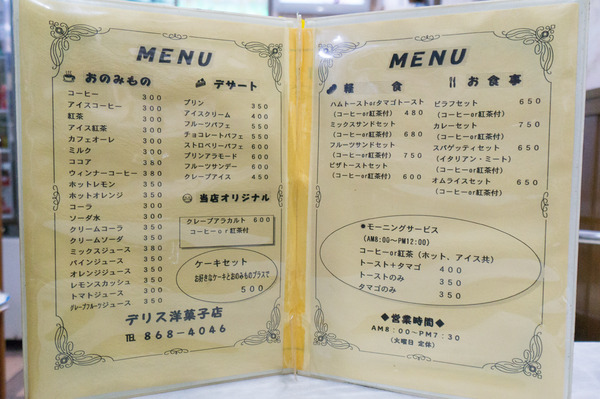 MENU
おのみもの
コーヒー 300
アイスコーヒー 300
紅茶 300
アイス紅茶 300
カフェオーレ 300
ミルク 300
ココア 350
ウィンナーコーヒー 380
ホットレモン 350
ホットオレンジ 350
コーラ 300
ソーダ水 300
クリームコーラ 350
クリームソーダ 350
ミックスジュース 380
パインジュース 350
オレンジジュース 350
レモンスカッシュ 350
トマトジュース 350
グレープフルーツジュース 350
デザート
プリン 350
アイスクリーム 400
フルーツパフェ 550
チョコレートパフェ 550
ストロベリーパフェ 550
プリンアラモード 600
フルーツサンデー 600
クレープアイス 450
当店オリジナル
クレープアラカルト 600
コーヒーor紅茶付
ケーキセット
お好きなケーキとおのみものプラスで
500
デリス洋菓子店
TEL 868-4046
MENU
軽食
ハムトーストorタマゴトースト
(コーヒーor紅茶付) 480
ミックスサンドセット
(コーヒーor紅茶付) 680
フルーツサンドセット
(コーヒーor紅茶付) 750
ピザトーストセット
(コーヒーor紅茶付) 600
お食事
ピラフセット 650
(コーヒーor紅茶付)
カレーセット 750
(コーヒーor紅茶付)
スパゲッティセット 650
(イタリアン・ミート)
(コーヒーor紅茶付)
オムライスセット 650
(コーヒーor紅茶付)
*モーニングサービス
(AM8:00~PM12:00)
コーヒーor紅茶(ホット、アイス共)
トースト+タマゴ 400
トーストのみ 350
タマゴのみ 350
◆営業時間◆
AM8:00~PM7:30
(火曜日 定休)